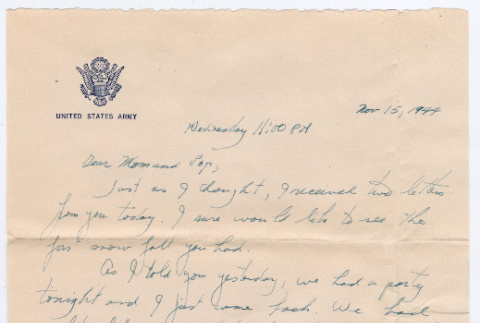 UNITED STATES ARMY
Nov 15, 1944
Wednesday 11:00 PM
Dear Mom and Pop,
Just as I thought, I received two letters
from you today. I sure would like to see the
snow fall you had.
As I told you yesterday, we had a party
tonight and I just came back. We had